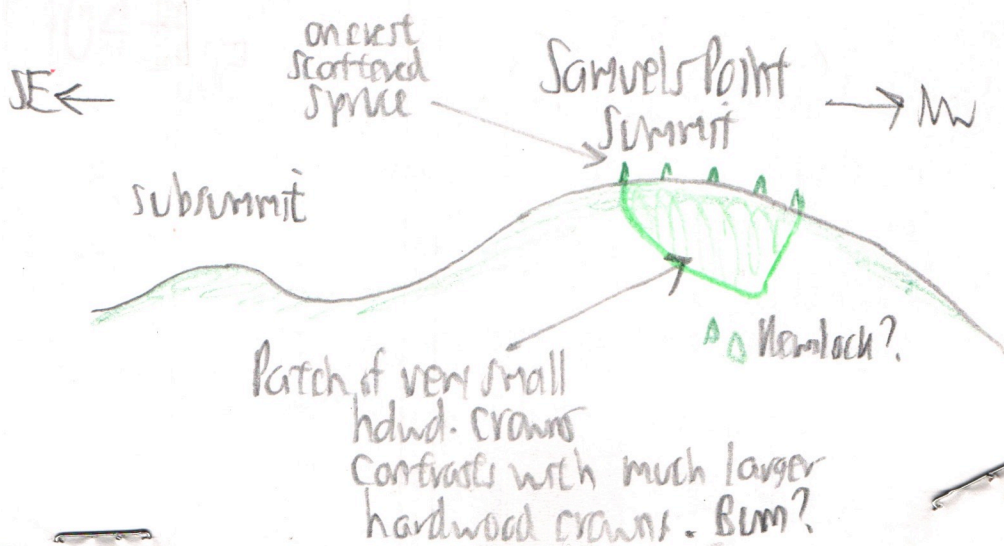 on crest
scattered
spruce
Samuels Point
Summit
SE
NW
subsummit
Hemlock?
Patch of very small
hdwd. crowns
contrasts with much larger
hardwood crowns. Burn?